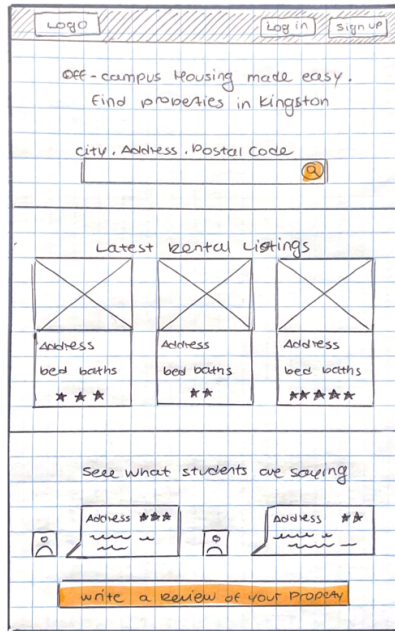 LOGO
Log in
Sign up
Off-campus Housing made easy.
Find properties in Kingston
City. Address. Postal Code
Latest Rental Listings
Address
bed baths
★★★
Address
bed baths
★★
Address
bed baths
★★★★★
See what students are saying
Address ★★★
Address ★★
write a Review of your Property